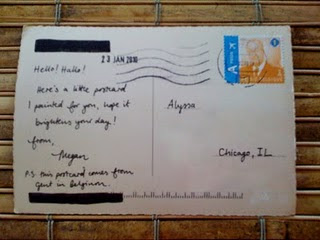 23 JAN 2010
Hello! Hallo!
Here's a little postcard
I painted for you, hope it
brightens your day!
from,
Megan
P.S. this postcard comes from
Gent in Belgium.
Alyssa
Chicago, IL
A
1